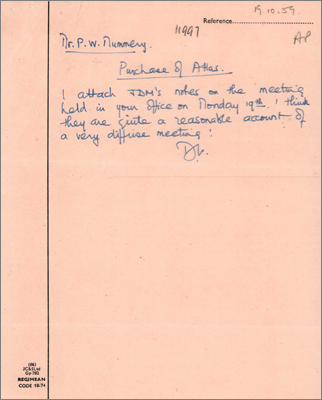 19.10.59.
Reference
11997
AP
Mr. P. W. Mummery.
Purchase of Atlas.
I attach JDM's notes on the meeting
held in your office on Monday 19th. I think
they are quite a reasonable account of
a very diffuse meeting!
(86)
JC&SLtd
Gp 783
REGIMEAN
CODE 18-74